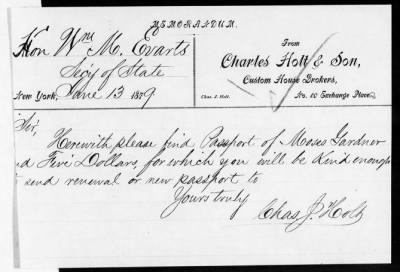 MEMORANDUM.
Hon Wm M. Evarts
Sec'y of State
New York, June 13 1879
From
Charles Holt & Son,
Custom House Brokers,
Chas. J. Holt. No. 10 Exchange Place
Sir,
Herewith please find Passport of Moses Gardner
nd Five Dollars, for which you will be kind enough
send renewal or new passport to
Yours truly
Chas. J. Holt